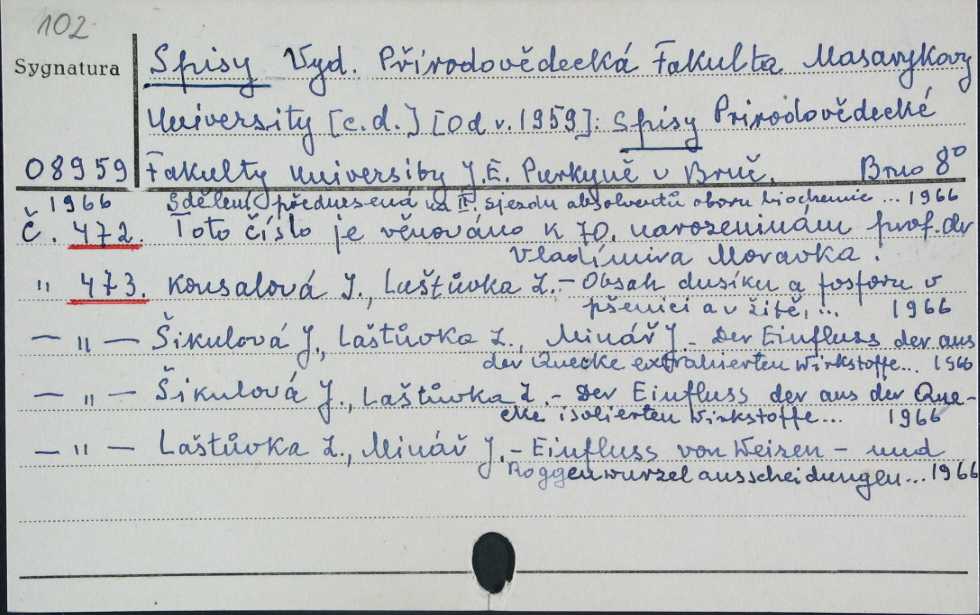 102
Sygnatura
Spisy Vyd. Přírodovědecká Fakulta Masarykovy
University [c.d.] [Od r. 1959]: Spisy Prirodovědecké
08959 Fakulty University J.E. Purkyně v Brně. Brno 8°
1966 Sdělení přednesená na II. sjezdu absolventů oboru biochemie ... 1966
Č. 472. Toto číslo je věnováno k 70. narozeninám prof. dr
Vladimira Moravka.
" 473. Konsalová J., Laštůvka Z. - Obsah dusíku a fosforu v
pšenici a v žitě, ... 1966
— " — Šikulová J., Laštůvka Z., Minář J. - Der Einfluss der aus
der Quecke extrahierten Wirkstoffe... 1966
— " — Šikulová J., Laštůvka Z. - Der Einfluss der aus der Que-
cke isolierten Wirkstoffe... 1966
— " — Laštůvka Z., Minář J. - Einfluss von Weizen - und
Roggenwurzelausscheidungen... 1966